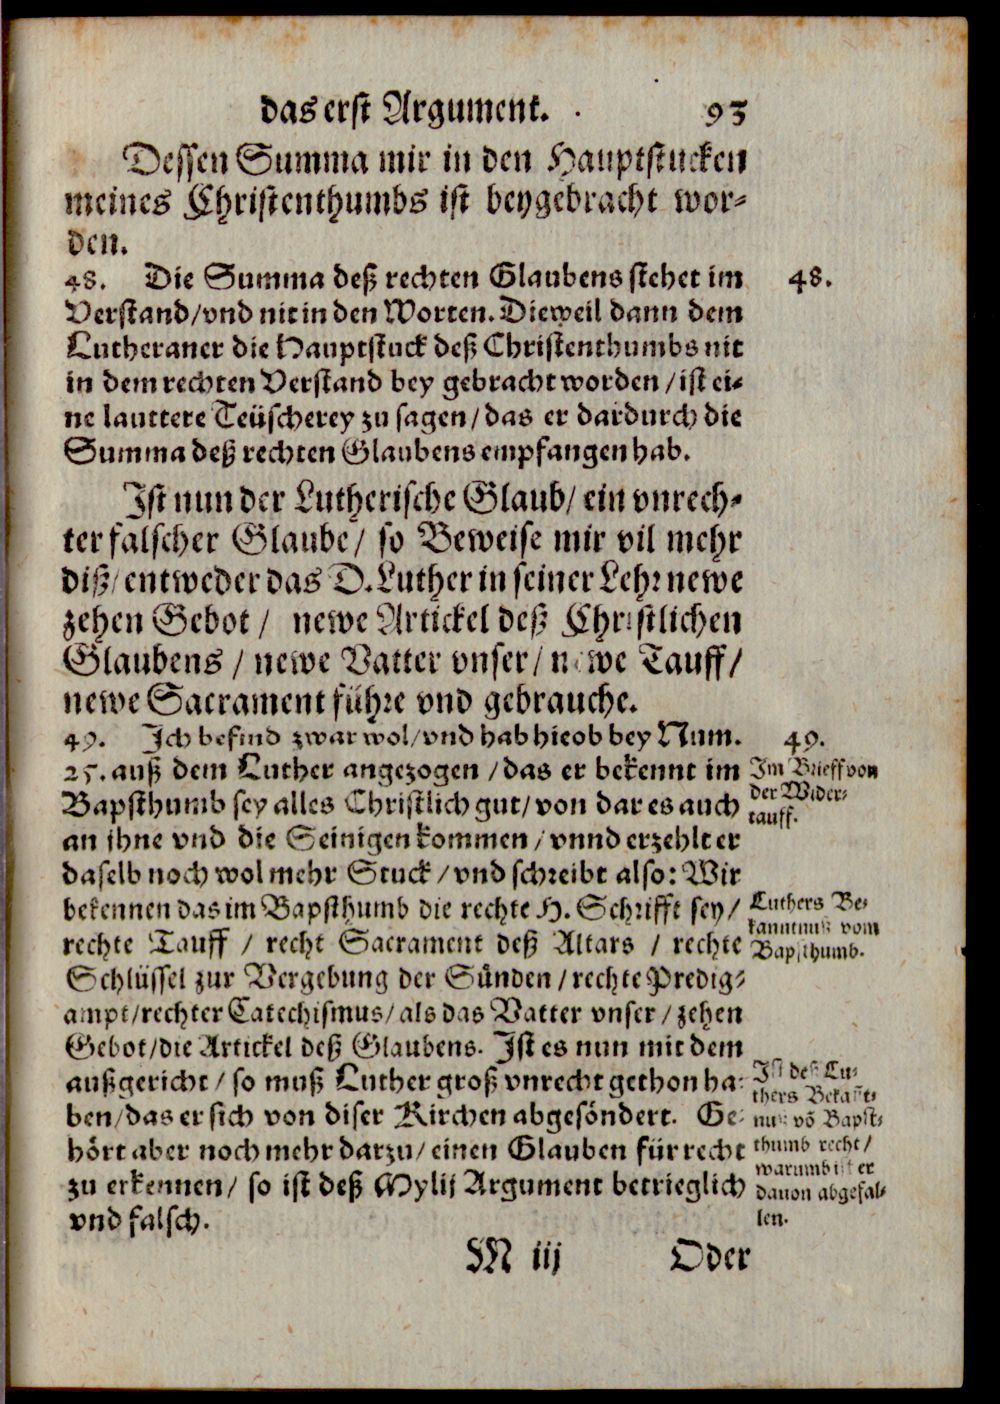 das erst Argument. 93
Dessen Summa mir in den Hauptstucken
meines Christenthumbs ist beygebracht wor-
den.
48. Die Summa deß rechten Glaubens stehet im
Verstand/vnd nit in den Worten. Dieweil dann dem
Lutheraner die Hauptstuck deß Christenthumbs nit
in dem rechten Verstand bey gebracht worden/ist ei-
ne lauttere Teüscherey zu sagen/das er dardurch die
Summa deß rechten Glaubens empfangen hab.
48.
Ist nun der Lutherische Glaub/ein vnrech-
ter falscher Glaube/ so Beweise mir vil mehr
diß/entweder das D. Luther in seiner Lehr newe
zehen Gebot / newe Artickel deß Christlichen
Glaubens / newe Vatter vnser/ newe Tauff/
newe Sacrament führe vnd gebrauche.
49. Ich befind zwar wol/vnd hab hieob bey Num.
25. auß dem Luther angezogen /das er bekennt im
Bapsthumb sey alles Christlich gut/von dar es auch
an ihne vnd die Seinigen kommen/vnnd erzehlt er
daselb noch wol mehr Stuck/vnd schreibt also: Wir
bekennen das im Bapsthumb die rechte H. Schrifft sey/
rechte Tauff / recht Sacrament deß Altars / rechte
Schlüssel zur Vergebung der Sünden/rechte Predig-
ampt/rechter Catechismus/als das Vatter vnser/zehen
Gebot/die Artickel deß Glaubens. Ist es nun mit dem
außgericht/ so muß Luther groß vnrecht gethon ha-
ben/das er sich von diser Kirchen abgesöndert. Ge-
hört aber noch mehr darzu/einen Glauben für recht
zu erkennen/ so ist deß Mylij Argument betrieglich
vnd falsch.
49.
Im Brieff von
der Wider-
tauff.
Luthers Be-
kanntnuß vom
Bapsthumb.
Ist deß Lu-
thers Bekañt-
nuß võ Bapst-
thumb recht/
warumb ist er
dauon abgefal-
len.
M iij Oder